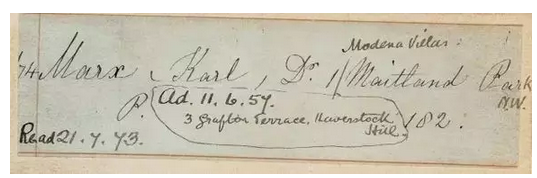 Modena Villas
74 Marx, Karl, Dr. 1/ Maitland Park
N.W.
P. Ad. 11.6.57.
3 Grafton Terrace, Haverstock
Hill. 182.
Read 21.7.73.